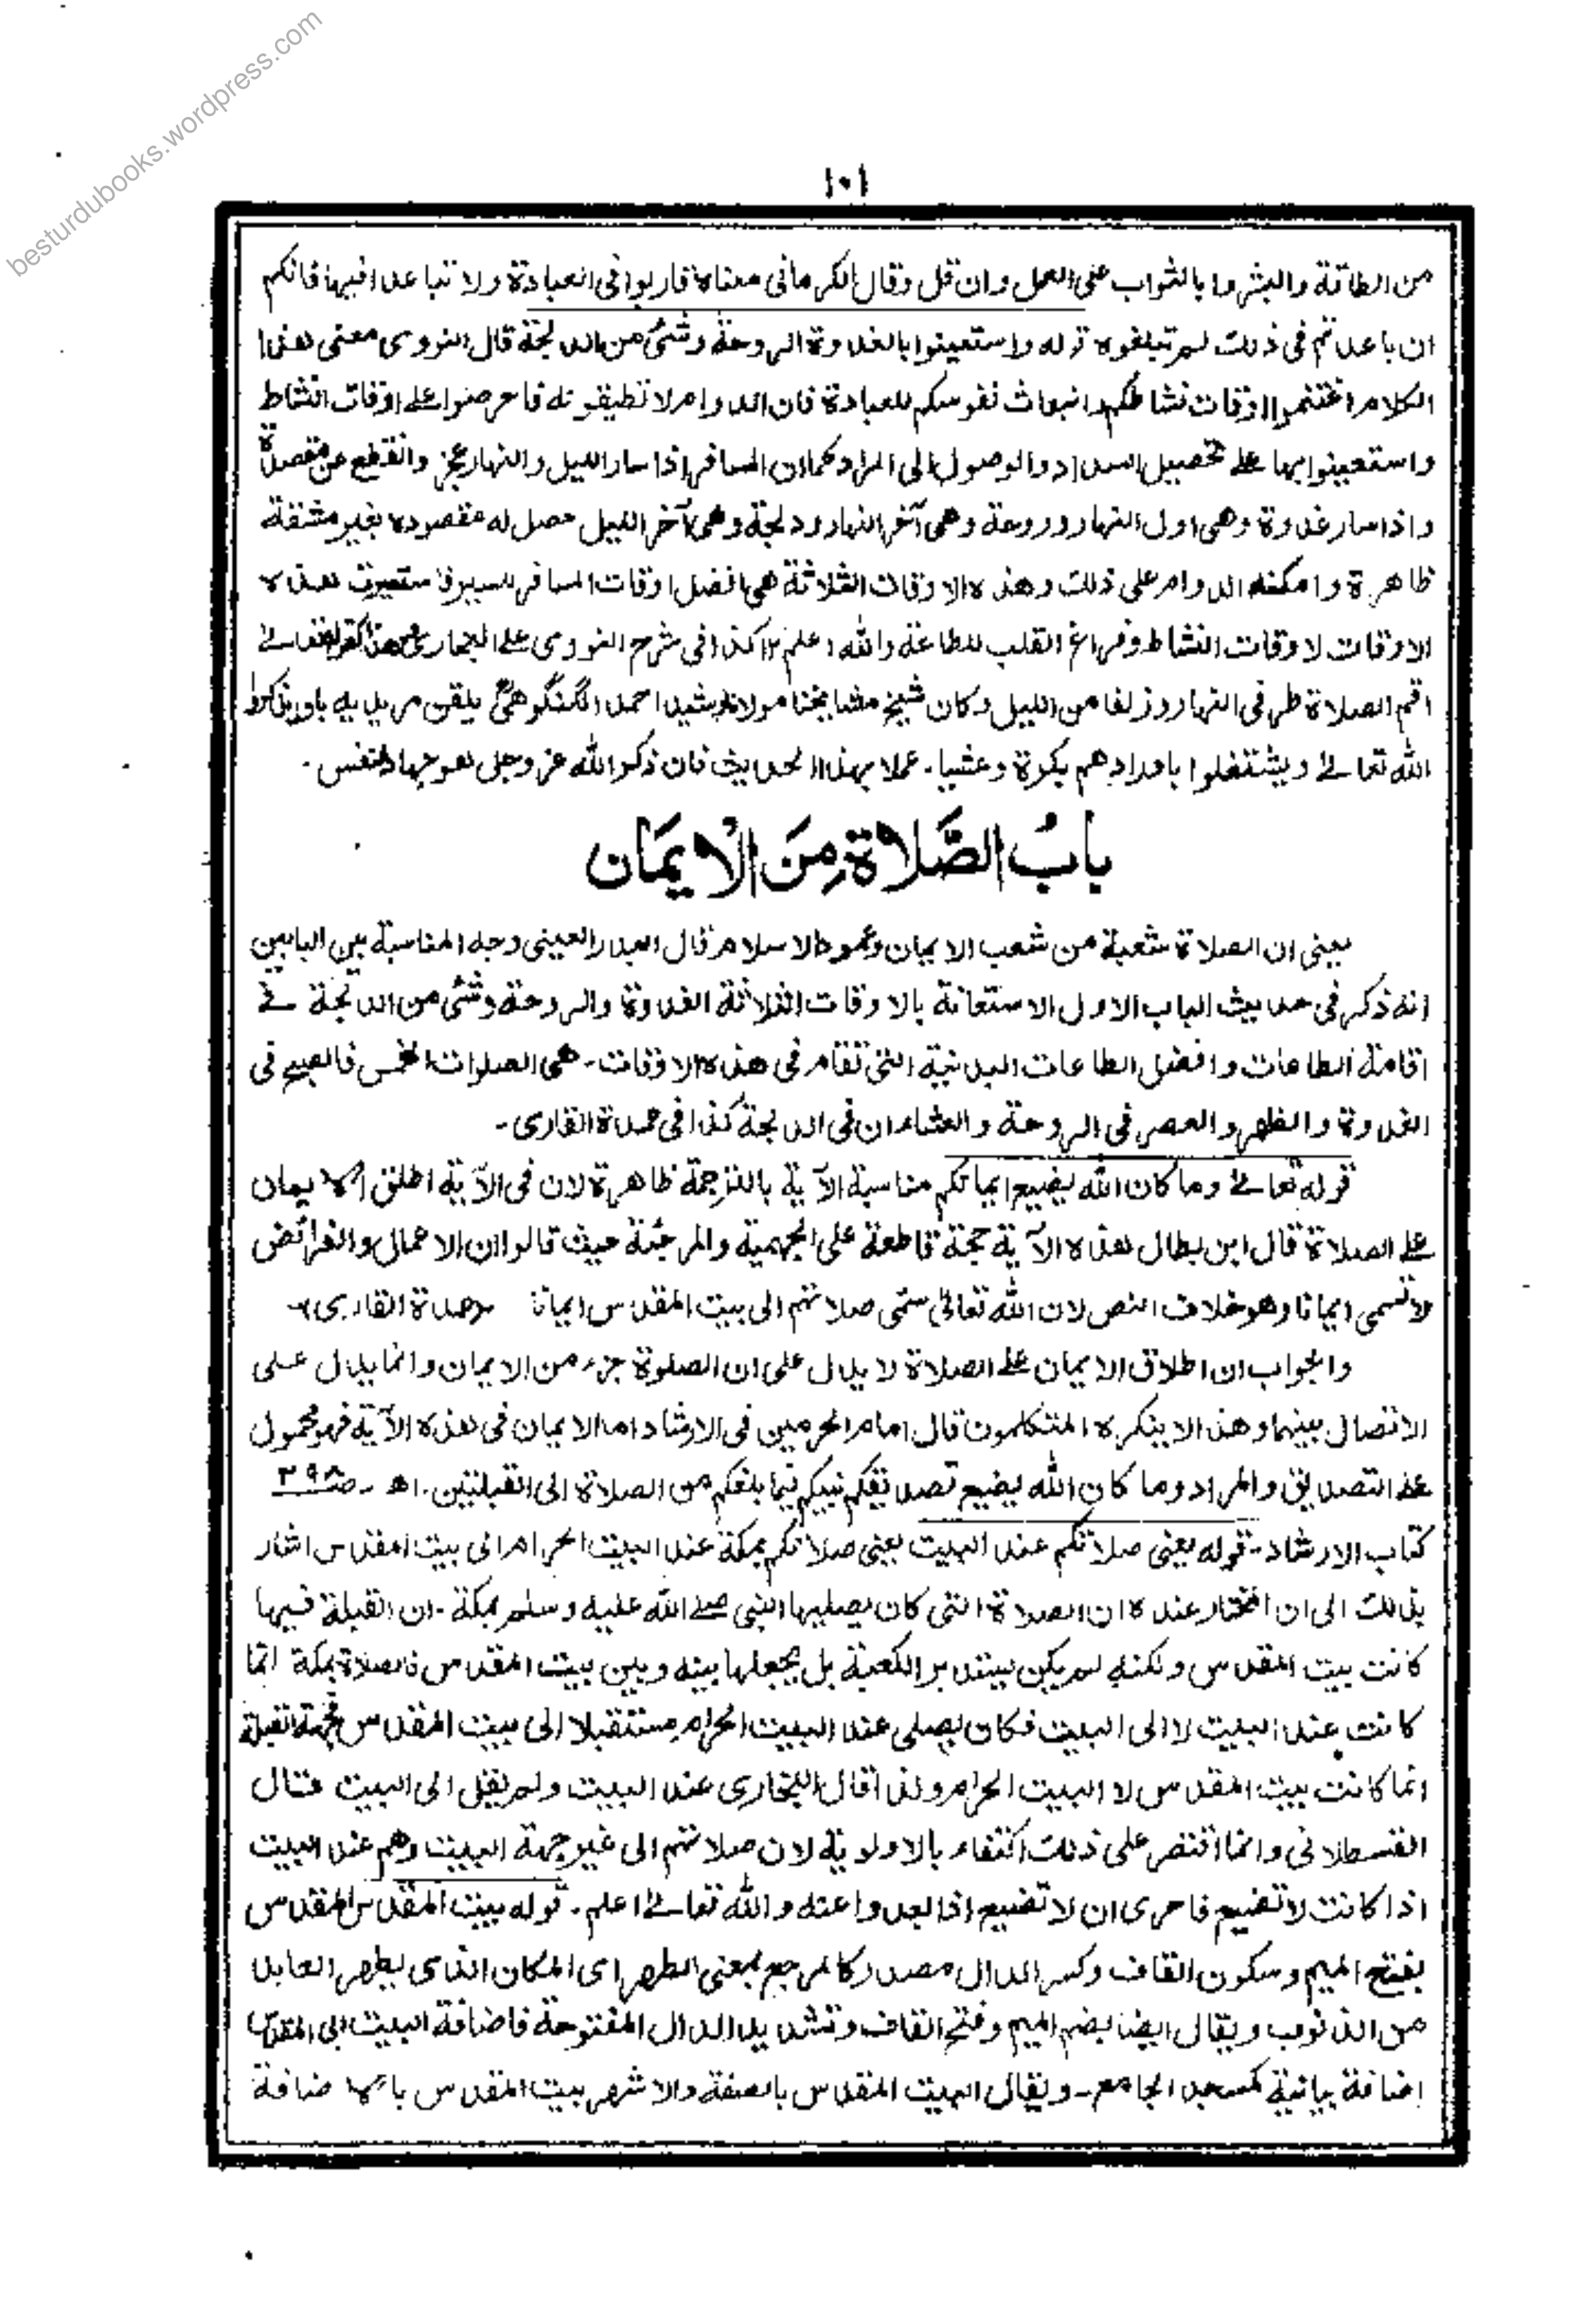 besturdubooks.wordpress.com
١٠١
من الطاقة والبشروا بالثواب على العمل وان قل وقال الكرمانى معناه قاربوا فى العبادة ولا تباعدوا فيها فانكم
ان باعدتم فى ذلك لم تبلغوه قوله واستعينوا بالغدوة والروحة وشئ من الدلجة قال النووى معنى هذا
الكلام اغتنموا اوقات نشاطكم وانبعاث نفوسكم للعبادة فان الدوام لا تطيقونه فاحرصوا على اوقات النشاط
واستعينوا بها على تحصيل السداد والوصول الى المراد كما ان المسافر اذا سار الليل والنهار عجز وانقطع عن مقصده
واذا سار غدوة وهى اول النهار وروحة وهى آخر النهار ودلجة وهى آخر الليل حصل له مقصوده بغير مشقة
ظاهرة وامكنه الدوام على ذلك وهذه الاوقات الثلاثة هى افضل اوقات المسافر للسير فاستعيرت هذه
الاوقات لاوقات النشاط وفراغ القلب للطاعة والله اعلم ١٢ كذا فى شرح النووى على البخارى وهذا كقوله تعالى
اقم الصلاة طرفى النهار وزلفا من الليل وكان شيخ مشايخنا مولانا رشيد احمد الگنگوهىؒ يلقن مريديه بان يذكروا
الله تعالى ويشتغلوا باورادهم بكرة وعشيا۔ عملا بهذا الحديث فان ذكر الله عز وجل هو جهاد النفس۔
بابُ الصَّلاة مِنَ الْاِيمَان
يعنى ان الصلاة شعبة من شعب الايمان وعمود الاسلام قال البدر العينى وجه المناسبة بين البابين
انه ذكر فى حديث الباب الاول الاستعانة بالاوقات الثلاثة الغدوة والروحة وشئ من الدلجة فى
اقامة الطاعات وافضل الطاعات البدنية التى تقام فى هذه الاوقات۔ هى الصلوات الخمس فالصبح فى
الغدوة والظهر والعصر فى الروحة والعشاءان فى الدلجة كذا فى عمدة القارى۔
قوله تعالى وما كان الله ليضيع ايمانكم مناسبة الآية بالترجمة ظاهرة لان فى الآية اطلق الايمان
على الصلاة قال ابن بطال هذه الآية حجة قاطعة على الجهمية والمرجئة حيث قالوا ان الاعمال والفرائض
لا تسمى ايمانا وهو خلاف النص لان الله تعالى سمى صلاتهم الى بيت المقدس ايمانا (عمدة القارى)۔
والجواب ان اطلاق الايمان على الصلاة لا يدل على ان الصلوة جزء من الايمان وانما يدل على
الاتصال بينهما وهذا لا ينكره المتكلمون قال امام الحرمين فى الارشاد اما الايمان فى هذه الآية فهو محمول
على التصديق والمراد وما كان الله ليضيع تصديقكم نبيكم فيما بلغكم من الصلاة الى القبلتين۔ اھ۔ ص ٣٩٨
كتاب الارشاد۔ قوله يعنى صلاتكم عند البيت يعنى صلاتكم بمكة عند البيت الحرام الى بيت المقدس اشار
بذلك الى ان المختار عنده ان الصلاة التى كان يصليها النبى صلى الله عليه وسلم بمكة۔ ان القبلة فيها
كانت بيت المقدس ولكنه لم يكن يستدبر الكعبة بل يجعلها بينه وبين بيت المقدس فالصلاة بمكة انما
كانت عند البيت لا الى البيت فكان يصلى عند البيت الحرام مستقبلا الى بيت المقدس فجهة القبلة
انما كانت بيت المقدس لا البيت الحرام ولذا قال البخارى عند البيت ولم يقل الى البيت قال
القسطلانى وانما اقتصر على ذلك اكتفاء بالاولوية لان صلاتهم الى غير جهة البيت وهم عند البيت
اذا كانت لا تضيع فاحرى ان لا تضيع اذا بعدوا عنه والله تعالى اعلم۔ قوله بيت المقدس المقدس
بفتح الميم وسكون القاف وكسر الدال مصدر كالمرجع بمعنى الطهر اى المكان الذى يطهر العابد
من الذنوب ويقال ايضا بضم الميم وفتح القاف وتشديد الدال المفتوحة فاضافة البيت الى المقدس
اضافة بيانية كمسجد الجامع۔ ويقال البيت المقدس بالصفة والاشهر بيت المقدس بالاضافة